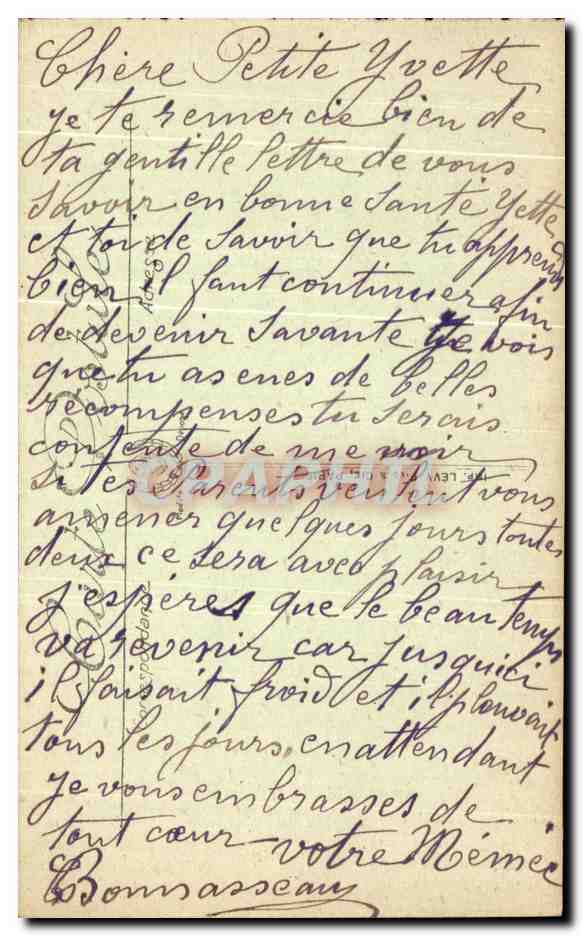 Chère Petite Yvette
je te remercie bien de
ta gentille lettre de vous
savoir en bonne santé Yette
et toi de savoir que tu apprends
bien il faut continuer afin
de devenir savante Je vois
que tu as enes de belles
récompenses tu serais
contente de me voir
si tes Parents veulent vous
amener quelques jours toutes
deux ce sera avec plaisir
j'espères que le beau temps
va revenir car jusquici
il faisait froid et il pleuvait
tous les jours, en attendant
je vous embrasses de
tout cœur votre Mémée
Bonnasseau
Carte Postale
Correspondance
Adresse
IMP. LEVY FILS & CIE, PARIS